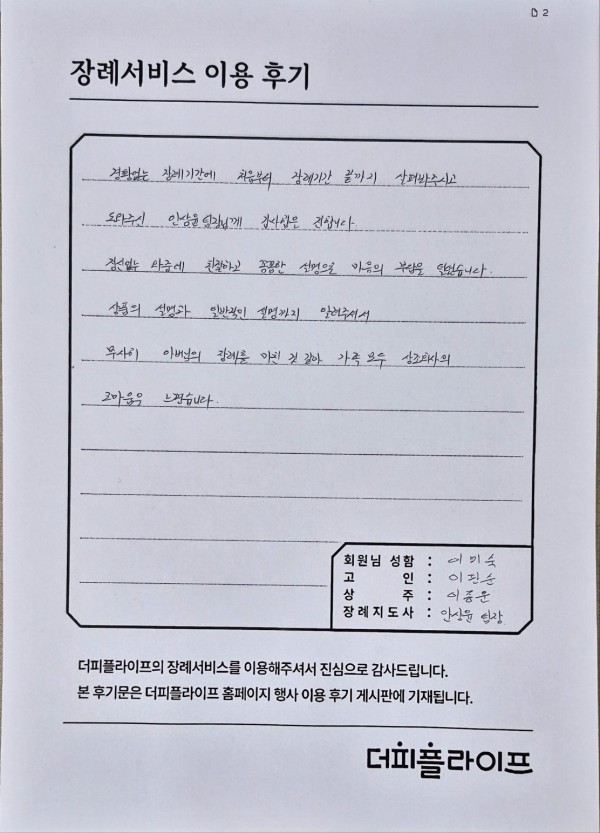 D 2
장례서비스 이용 후기
경황없는 장례기간에 처음부터 장례기간 끝까지 살펴봐주시고
도와주신 안상윤팀장님께 감사함은 전합니다.
정신없는 와중에 친절하고 꼼꼼한 설명으로 마음의 부담을 덜었습니다.
상품의 설명과 일반적인 설명까지 알려주셔서
무사히 아버님의 장례를 마친 것 같아 가족 모두 상조회사의
고마움을 느꼈습니다.
회원님 성함 : 이미숙
고 인 : 이판순
상 주 : 이종운
장례지도사 : 안상윤 팀장
더피플라이프의 장례서비스를 이용해주셔서 진심으로 감사드립니다.
본 후기문은 더피플라이프 홈페이지 행사 이용 후기 게시판에 기재됩니다.
더피플라이프